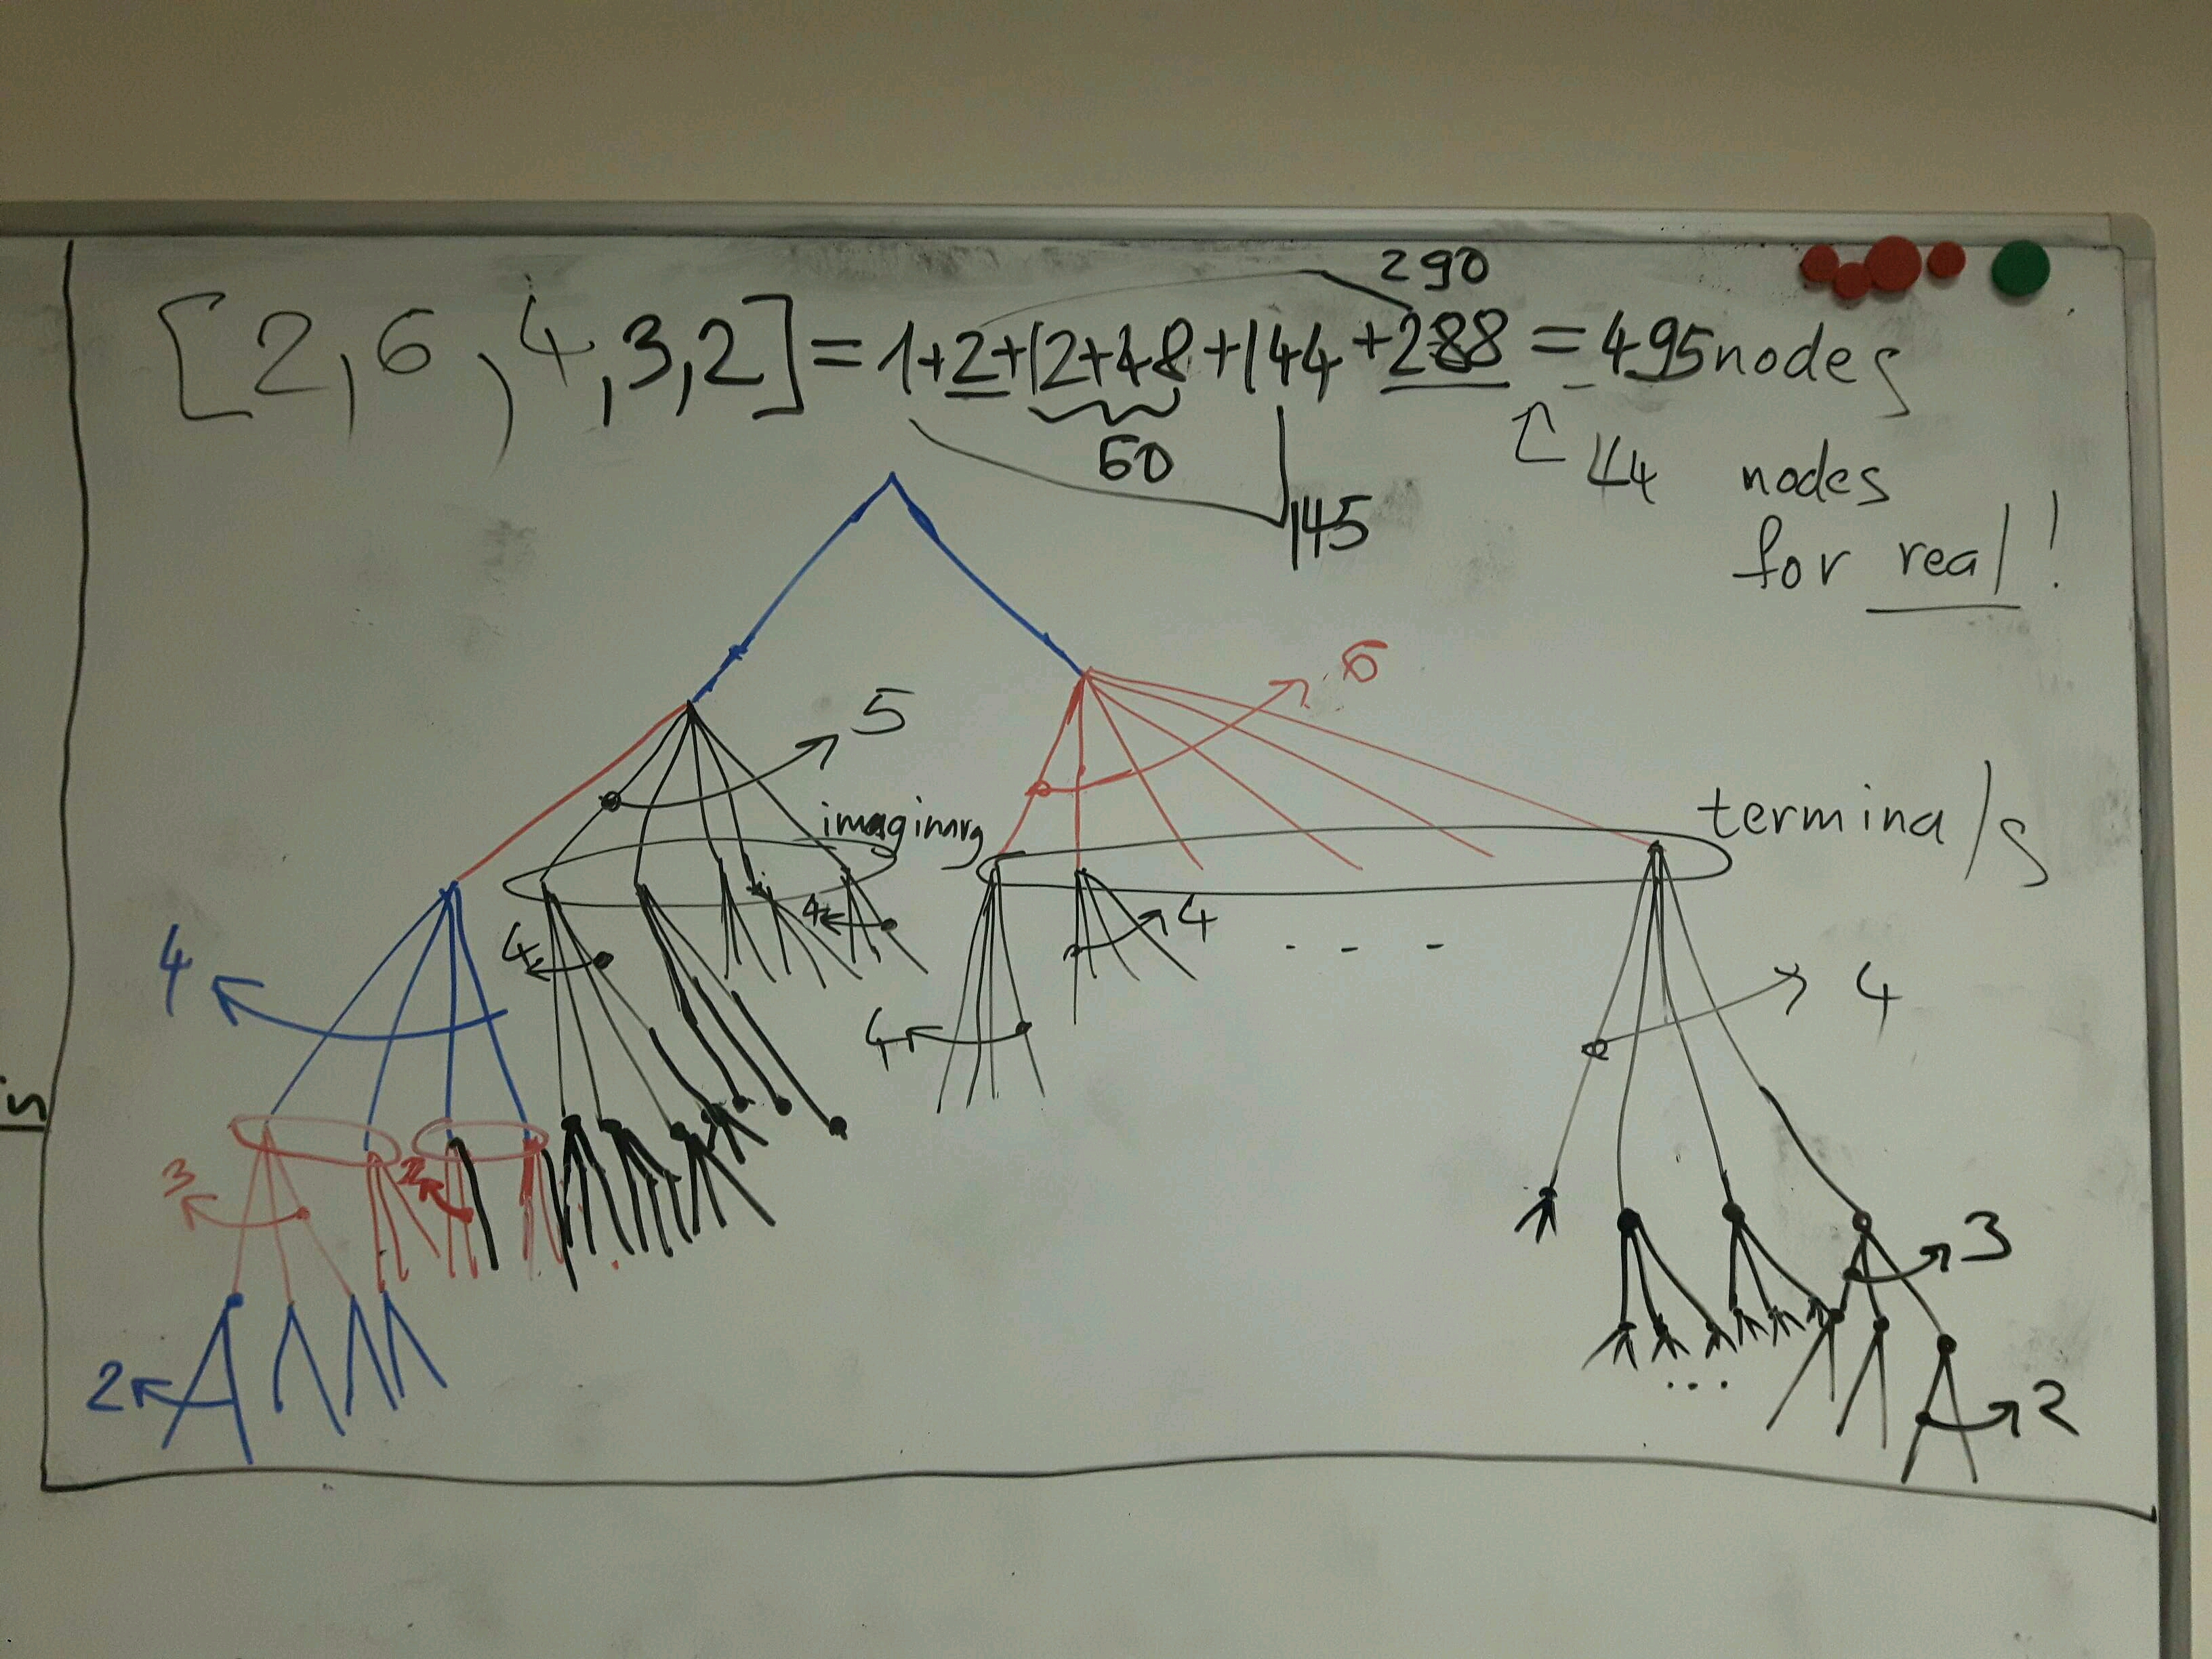 290
[2,6,4,3,2]=1+2+12+48+144+288=495nodes
60
44 nodes
145
for real!
6
5
imaginary
terminals
4
4
4
4
4
4
3
2
3
2
2
in